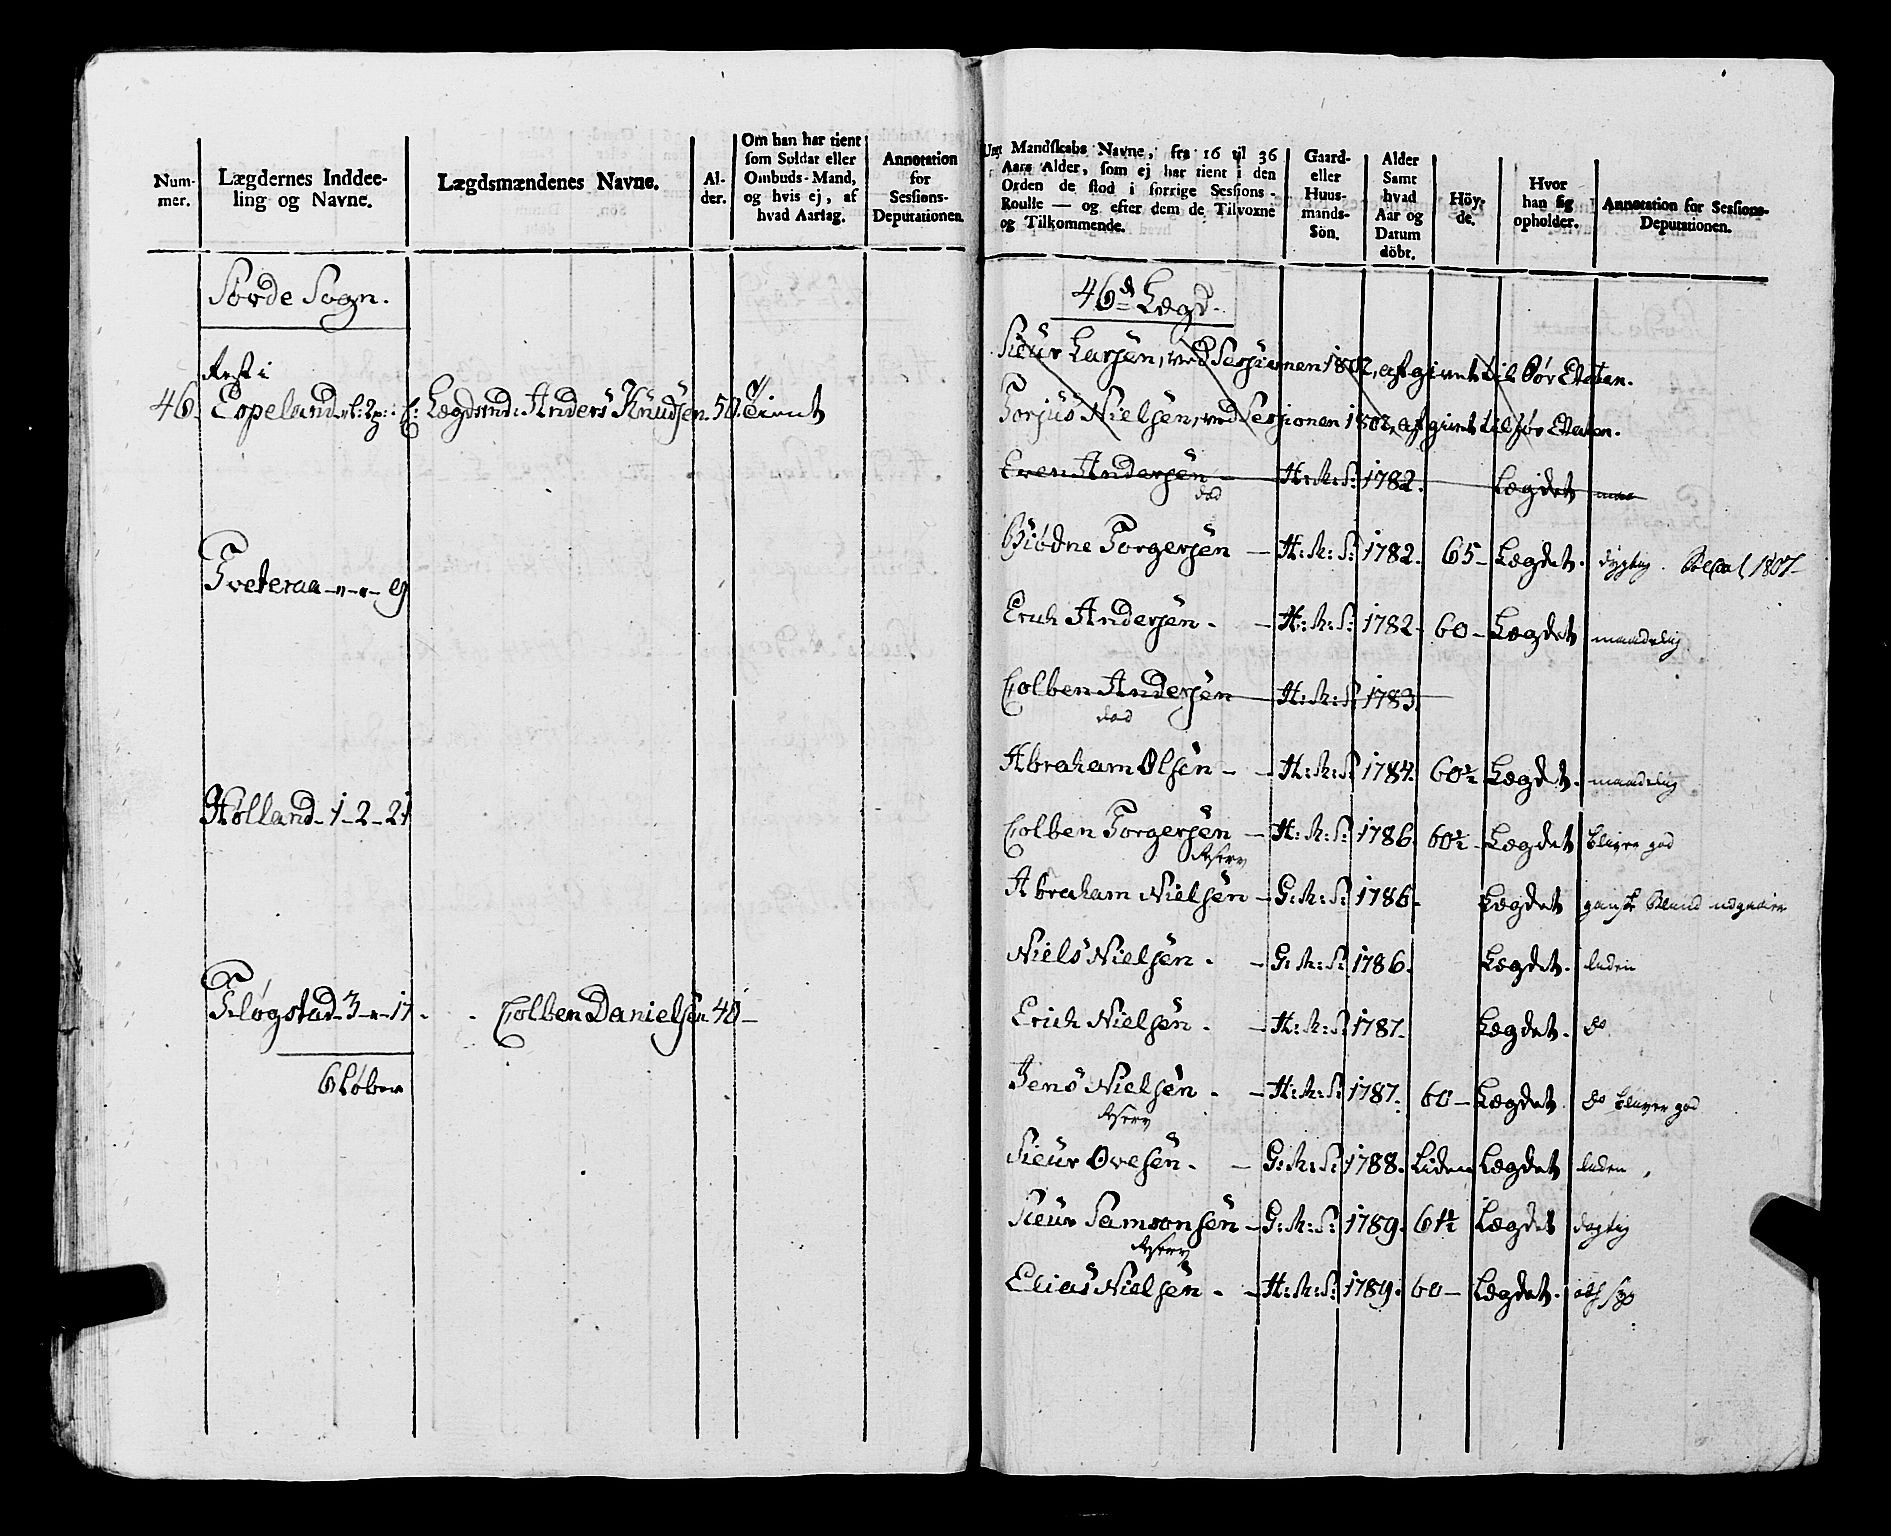 Num-
mer.
Lægdernes Inddee-
ling og Navne.
Lægdsmændenes Navne.
Al-
der.
Om han har tient
som Soldat eller
Ombuds-Mand,
og hvis ej, af
hvad Aarsag.
Annotation
for
Sessions-
Deputationen.
Sovde Sogn.
Rest i
46. Espeland Lægdsmd: Anders Knudsen 50. Tient
Tveteraa 19
Hølland 1 - 2 - 21
Fløgstad 3 - " - 17. Colben Danielsen 40 -
6 Løber
Ungt Mandskabs Navne, fra 16 til 36
Aars Alder, som ej har tient i den
Orden de stod i forrige Sessions-
Roulle — og efter dem de Tilvoxne
og Tilkommende.
Gaard-
eller
Huus-
mands-
Sön.
Alder
Samt
hvad
Aar og
Datum
döbt.
Höy-
de.
Hvor
han sig
opholder.
Annotation for Sessions-
Deputationen.
46de Lægd.
Sieur Larsen, ved Sessionen 1802, afgivet til Sør Etaten.
Torjus Nielsen, ved Sessionen 1802, afgivet til Sør Etaten.
Even Andersen - H: M: S: 1782. Lægdet
død
Biødne Torgersen - H: M: S: 1782. 65 - Lægdet. dygtig. 1807
Erich Andersen. - H: M: S: 1782. 60 - Lægdet maadelig
Colben Andersen - H: M: S: 1783.
død
Abraham Olsen - - H: M: S: 1784. 60½ Lægdet. maadelig
Colben Torgersen - H: M: S: 1786. 60½ - Lægdet bliver god
Reserv
Abraham Nielsen - G: M: S: 1786. Lægdet ganske Blind udgaaer
Niels Nielsen. - G: M: S: 1786. Lægdet. liden
Erich Nielsen. - H: M: S: 1787. Lægdet. do
Jens Nielsen. - H: M: S: 1787. 60 - Lægdet. do bliver god
Reserv
Sieur Ovesen. - G: M: S: 1788. Liden Lægdet liden
Sieur Samsonsen - G: M: S: 1789. 61½ Lægdet dygtig
Reserv
Elias Nielsen. - H: M: S: 1789. 60 - Lægdet.